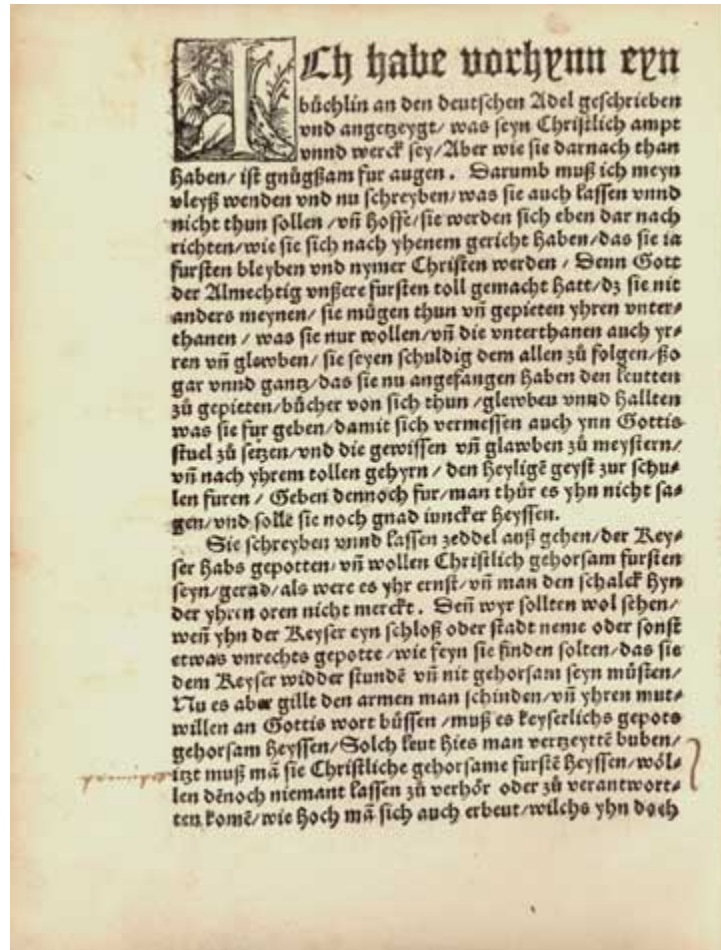 ICh habe vorhynn eyn
büchlin an den deutschen Adel geschrieben
vnd angetzeygt/ was seyn Christlich ampt
vnnd werck sey/Aber wie sie darnach than
haben/ ist gnůgßam fur augen. Darumb muß ich meyn
vleyß wenden vnd nu schreyben/was sie auch lassen vnnd
nicht thun sollen /vñ hoffe/sie werden sich eben dar nach
richten/wie sie sich nach yhenem gericht haben/das sie ia
fursten bleyben vnd nymer Christen werden / Denn Gott
der Almechtig vnßere fursten toll gemacht hatt/dz sie nit
anders meynen/ sie mügen thun vñ gepieten yhren vnter⸗
thanen / was sie nur wollen/vñ die vnterthanen auch yr⸗
ren vñ glewben/ sie seyen schuldig dem allen zů folgen/ßo
gar vnnd gantz/das sie nu angefangen haben den leutten
zů gepieten/bůcher von sich thun /glewben vnnd hallten
was sie fur geben/damit sich vermessen auch ynn Gottis
stuel zů setzen/vnd die gewissen vñ glawben zů meystern/
vñ nach yhrem tollen gehyrn / den heyligē geyst zur schu⸗
len furen / Geben dennoch fur/man thür es yhn nicht sa⸗
gen/vnd sollē sie noch gnad iuncker heyssen.
Sie schreyben vnnd lassen zeddel auß gehen/der Key⸗
ser habs gepotten/vñ wollen Christlich gehorsam fursten
seyn/gerad/als were es yhr ernst/vñ man den schalck hyn
der yhren oren nicht merckt. Deñ wyr sollten wol sehen/
weñ yhn der Keyser eyn schloß oder stadt neme oder sonst
etwas vnrechts gepotte /wie feyn sie finden solten/das sie
dem Keyser widder stundē vñ nit gehorsam seyn müsten/
Nu es aber gillt den armen man schinden/vñ yhren mut⸗
willen an Gottis wort büssen /muß es keyserlichs gepots
gehorsam heyssen/Solch leut hies man vertzeyttē buben/
itzt muß mā sie Christliche gehorsame furstē heyssen/wöl⸗
len dēnoch niemant lassen zů verhör oder zů verantwort⸗
ten komē/wie hoch mā sich auch erbeut/wilchs yhn doch